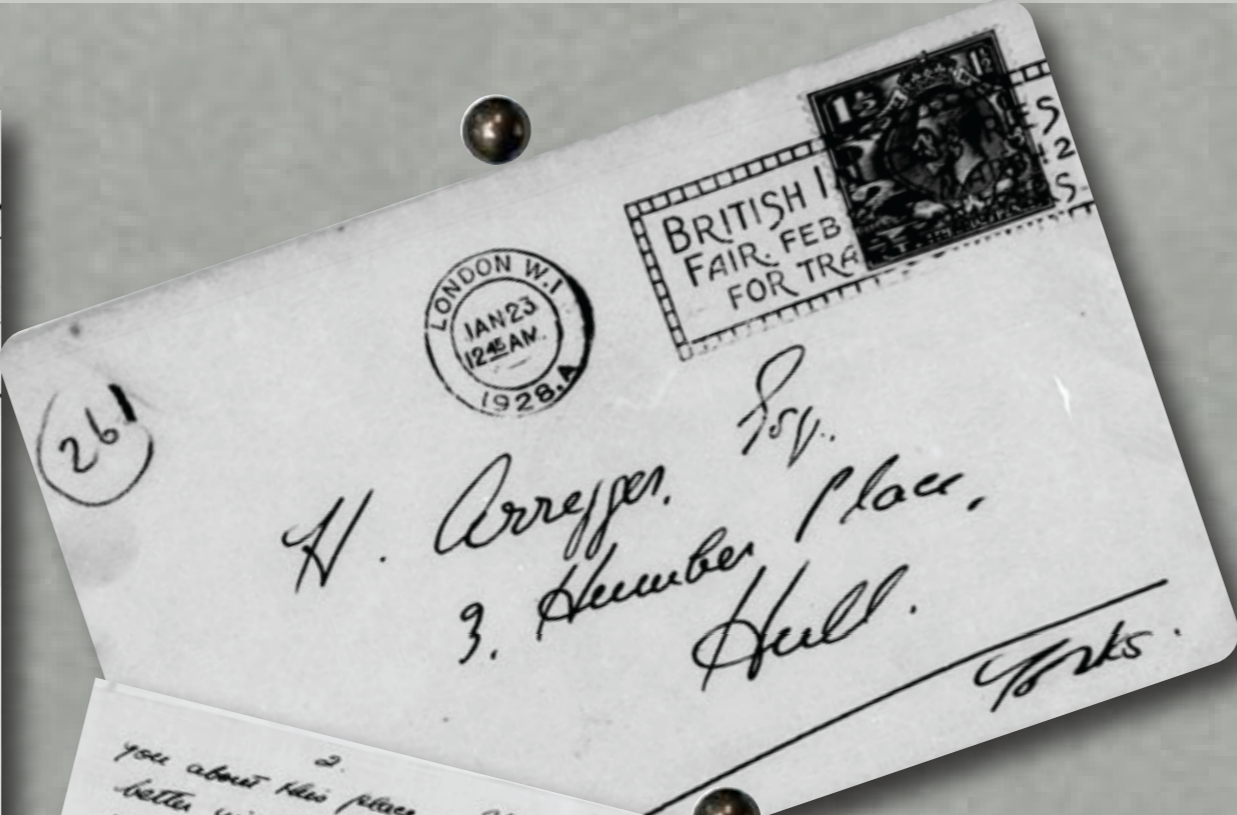 1½ 1½
BRITISH I ES
FAIR. FEB 12
FOR TRA S
LONDON W.1
JAN 23
12.45 AM.
1928.A
261
H. Arregger, Esq.
3. Humber Place,
Hull.
Yorks.
2.
you about this place
better